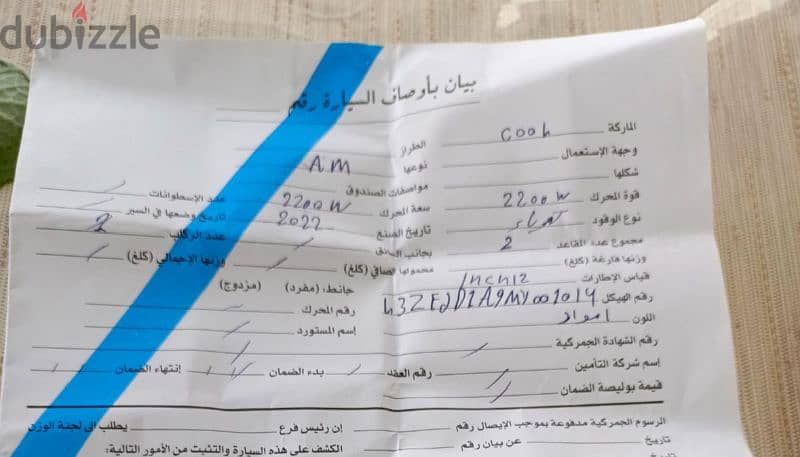 dubizzle
بيان بأوصاف السيارة رقم
الماركة cooh الطراز
وجهة الإستعمال نوعها AM
شكلها مواصفات الصندوق
قوة المحرك 2200W سعة المحرك 2200W عدد الإسطوانات /
نوع الوقود كهرباء تاريخ الصنع 2022 تاريخ وضعها في السير /
مجموع عدد المقاعد 2 بجانب السائق / عدد الركاب 2
وزنها فارغة (كلغ) محمولها الصافي (كلغ) / وزنها الإجمالي (كلغ) /
قياس الإطارات INCH12 جانط، (مفرد) (مزدوج)
رقم الهيكل رقم المحرك /
اللون اسود إسم المستورد /
رقم الشهادة الجمركية / /
إسم شركة التأمين / رقم العقد / بدء الضمان / / إنتهاء الضمان / /
قيمة بوليصة الضمان /
الرسوم الجمركية مدفوعة بموجب الإيصال رقم إن رئيس فرع يطلب إلى لجنة الوزن
تاريخ عن بيان رقم الكشف على هذه السيارة والتثبت من الأمور التالية:
تاريخ